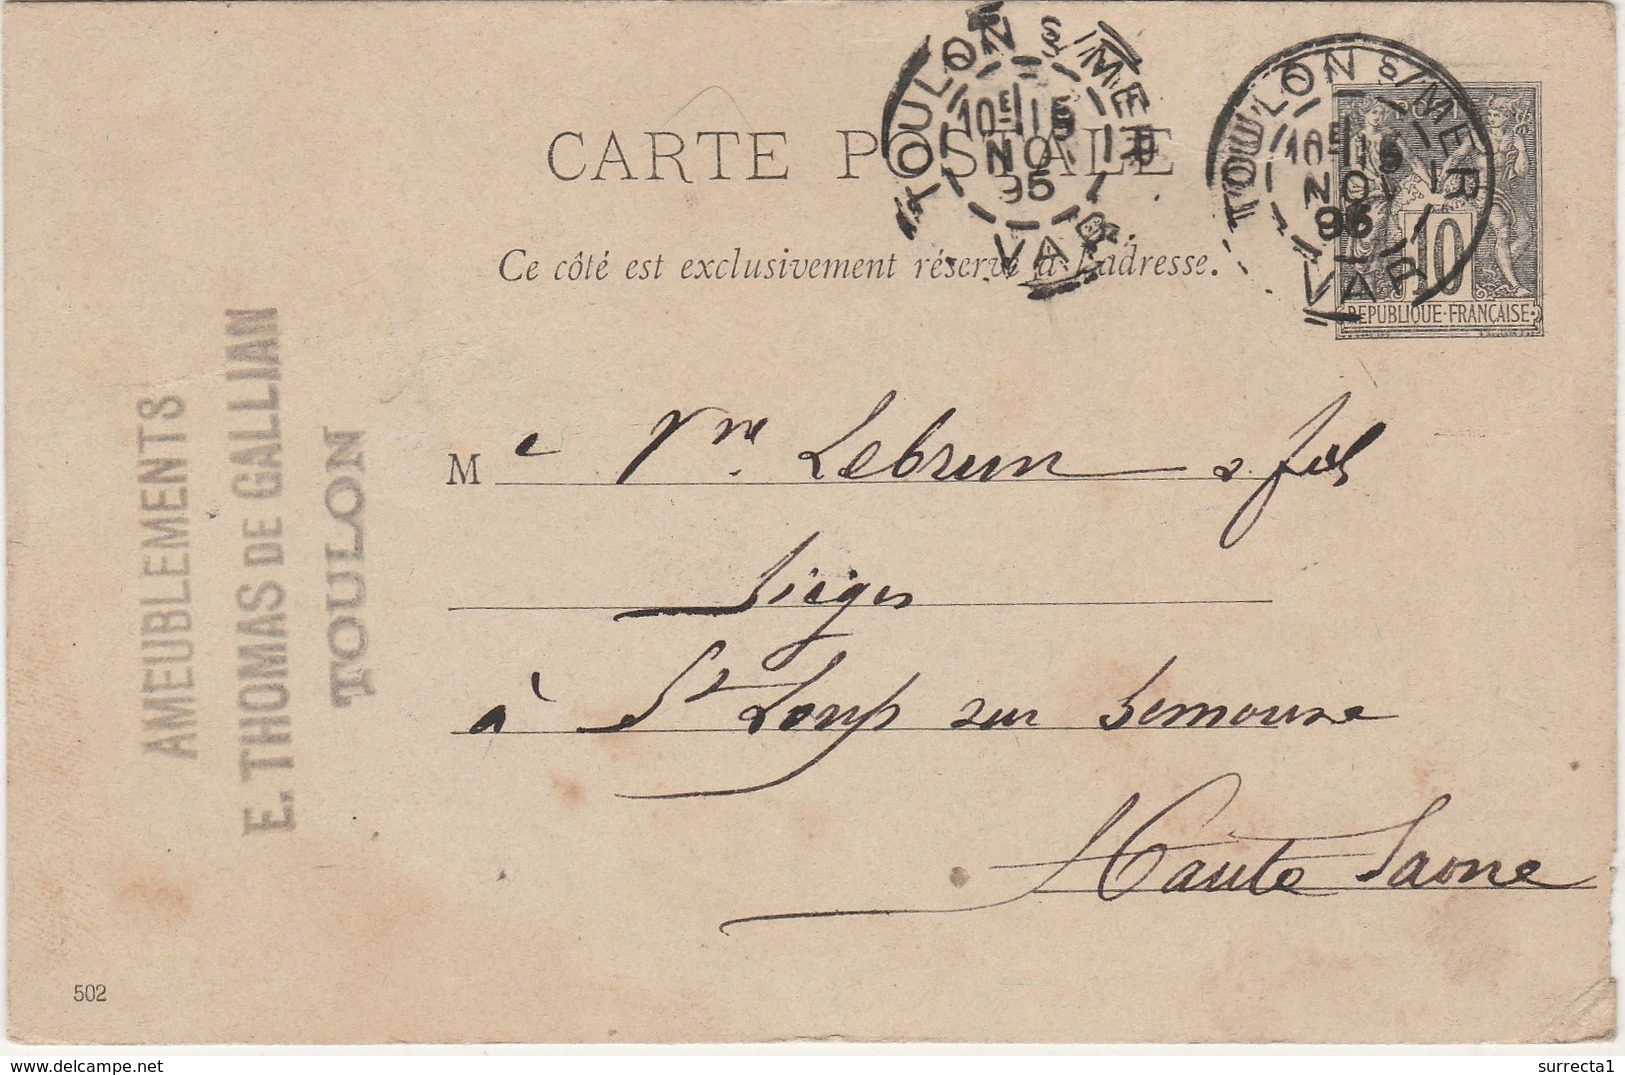 TOULON S/MER
10E 15
NO
95
VAR
TOULON S/MER
10E 15
NO
95
VAR
CARTE POSTALE
Ce côté est exclusivement réservé à l'adresse.
10
REPUBLIQUE·FRANÇAISE
AMEUBLEMENTS
E. THOMAS DE GALLIAN
TOULON
Me Vve Lebrun & fils
Sièges
à St Loup sur Semouse
Haute Saone
502
surrecta1